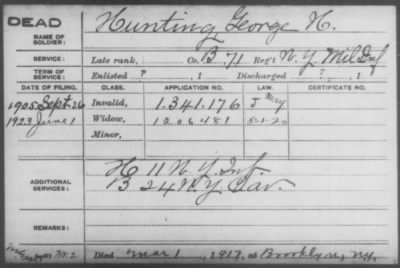 DEAD
NAME OF SOLDIER: Hunting, George H.
SERVICE: Late rank, Co. B 71 Reg't N.Y. Mil Inf
TERM OF SERVICE: Enlisted ?, 1 Discharged ?, 1
DATE OF FILING. CLASS. APPLICATION NO. LAW. CERTIFICATE NO.
1905 Sept. 26 Invalid, 1.341.176 J
1923 June 1 Widow, 1206481 5-1-20
Minor,
ADDITIONAL SERVICES: H 11 N.Y. Inf.
B 24 N.Y. Cav.
REMARKS:
Died Mar 1, 1917, at Brooklyn, N.Y.